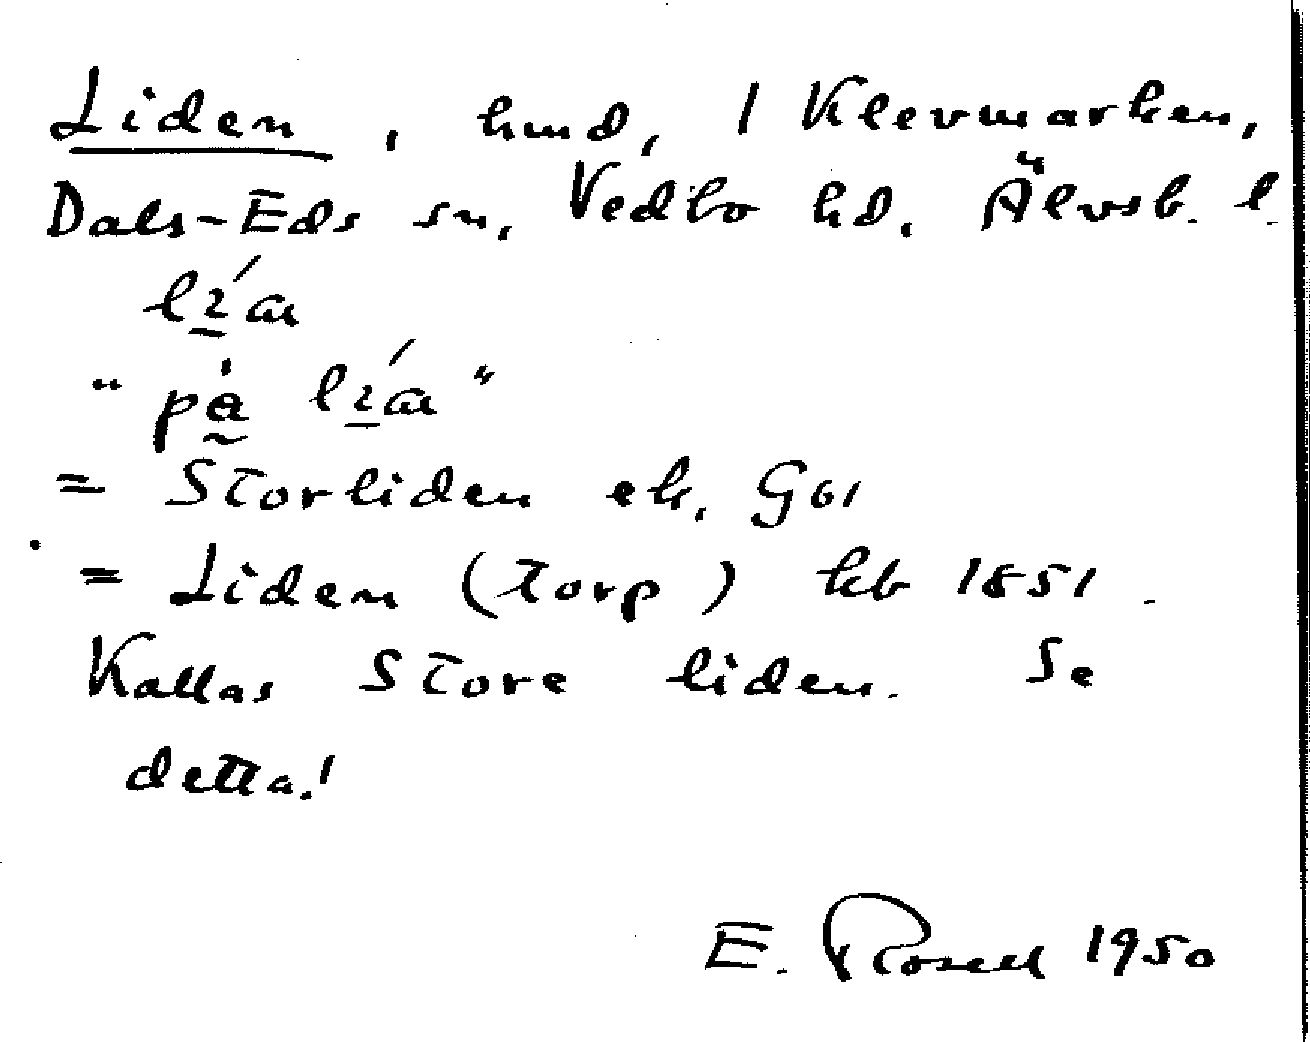 Liden, hmd, 1 Klevmarken,
Dals-Eds sn, Vedbo hd. Älvsb. l.
"på
= Storliden ek. G61
= Liden (torp) hb 1851.
Kallas Store liden. Se
detta!
E. Rosell 1950